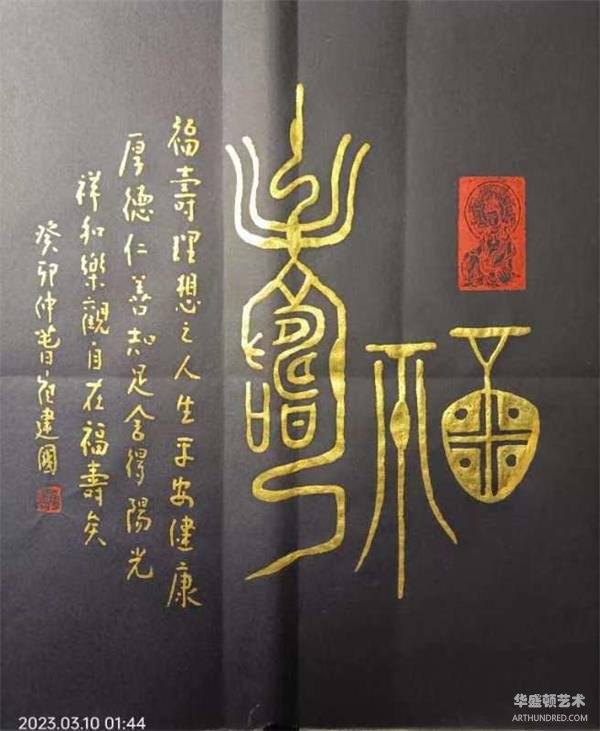 福壽
福壽理想之人生平安健康
厚德仁善知足舍得陽光
祥和樂觀自在福壽矣
癸卯仲春崔建國
2023.03.10 01:44
华盛顿艺术
ARTHUNDRED.COM